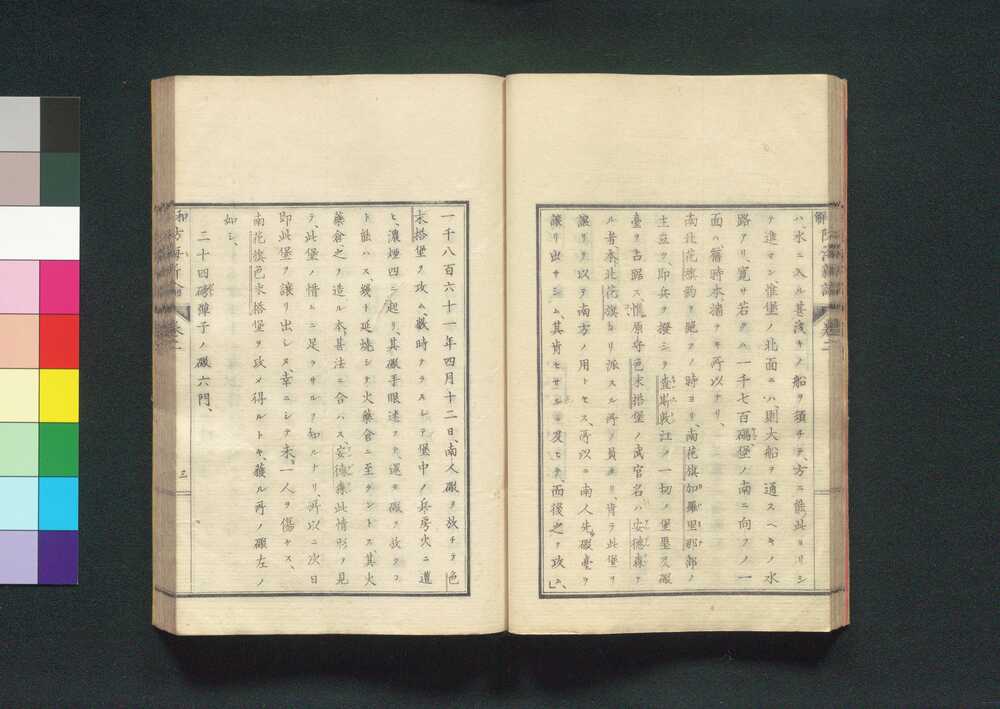 ハ、水ニ入ル甚浅キノ船ヲ須チテ、方ニ能此ヨリシ
テ進マン、惟堡ノ北面ニハ則大船ヲ通スヘキノ水
路アリ、寛サ若クハ一千七百碼堡ノ南ニ向フノ一
面ハ舊時本
南北花旗釣ヲ絶フノ時ヨリ、南花旗加羅里那部ノ
土豆ヲ、即兵ヲ撥シテ査斯敦江ノ一切ノ堡壘ヲ
臺ヲ占踞ス、惟原守色末搭堡ノ武官名ハ安德森ナ
ル者、本北花旗ヨリ派スル所ノ員ナリ、肯テ此堡ヲ
譲リ以テ南方ノ用トセス、所以ニ南人先礮臺ヲ
譲リ出サシム、其肯セサルニ及ヒテ、而後之ヲ攻ム、
一千八百六十一年四月十二日、南人礮ヲ放チテ色
末搭堡ヲ攻ム、數時ナラスシテ堡中ノ兵房火ニ遭
ヒ、濃煙四ニ起リ、其礮手眼迷ヲテ、還タ礮ヲ放ツコ
ト能ハス、幾ト延焼シテ火藥倉ニ至ラントス、其火
藥倉之ヲ造ル本甚法ニ合ハス、安德森此情形ヲ見
テ、此堡ノ惜ムニ足ラサルヲ知ルナリ、所以ニ次日
即此堡ヲ譲リ出レヌ、幸ニシテ未一人ヲ傷ケス、
南花旗色末搭堡ヲ攻メ得ルトキ、獲ル所ノ礮左ノ
如シ、
二十四磅弾子ノ礮六門、
三